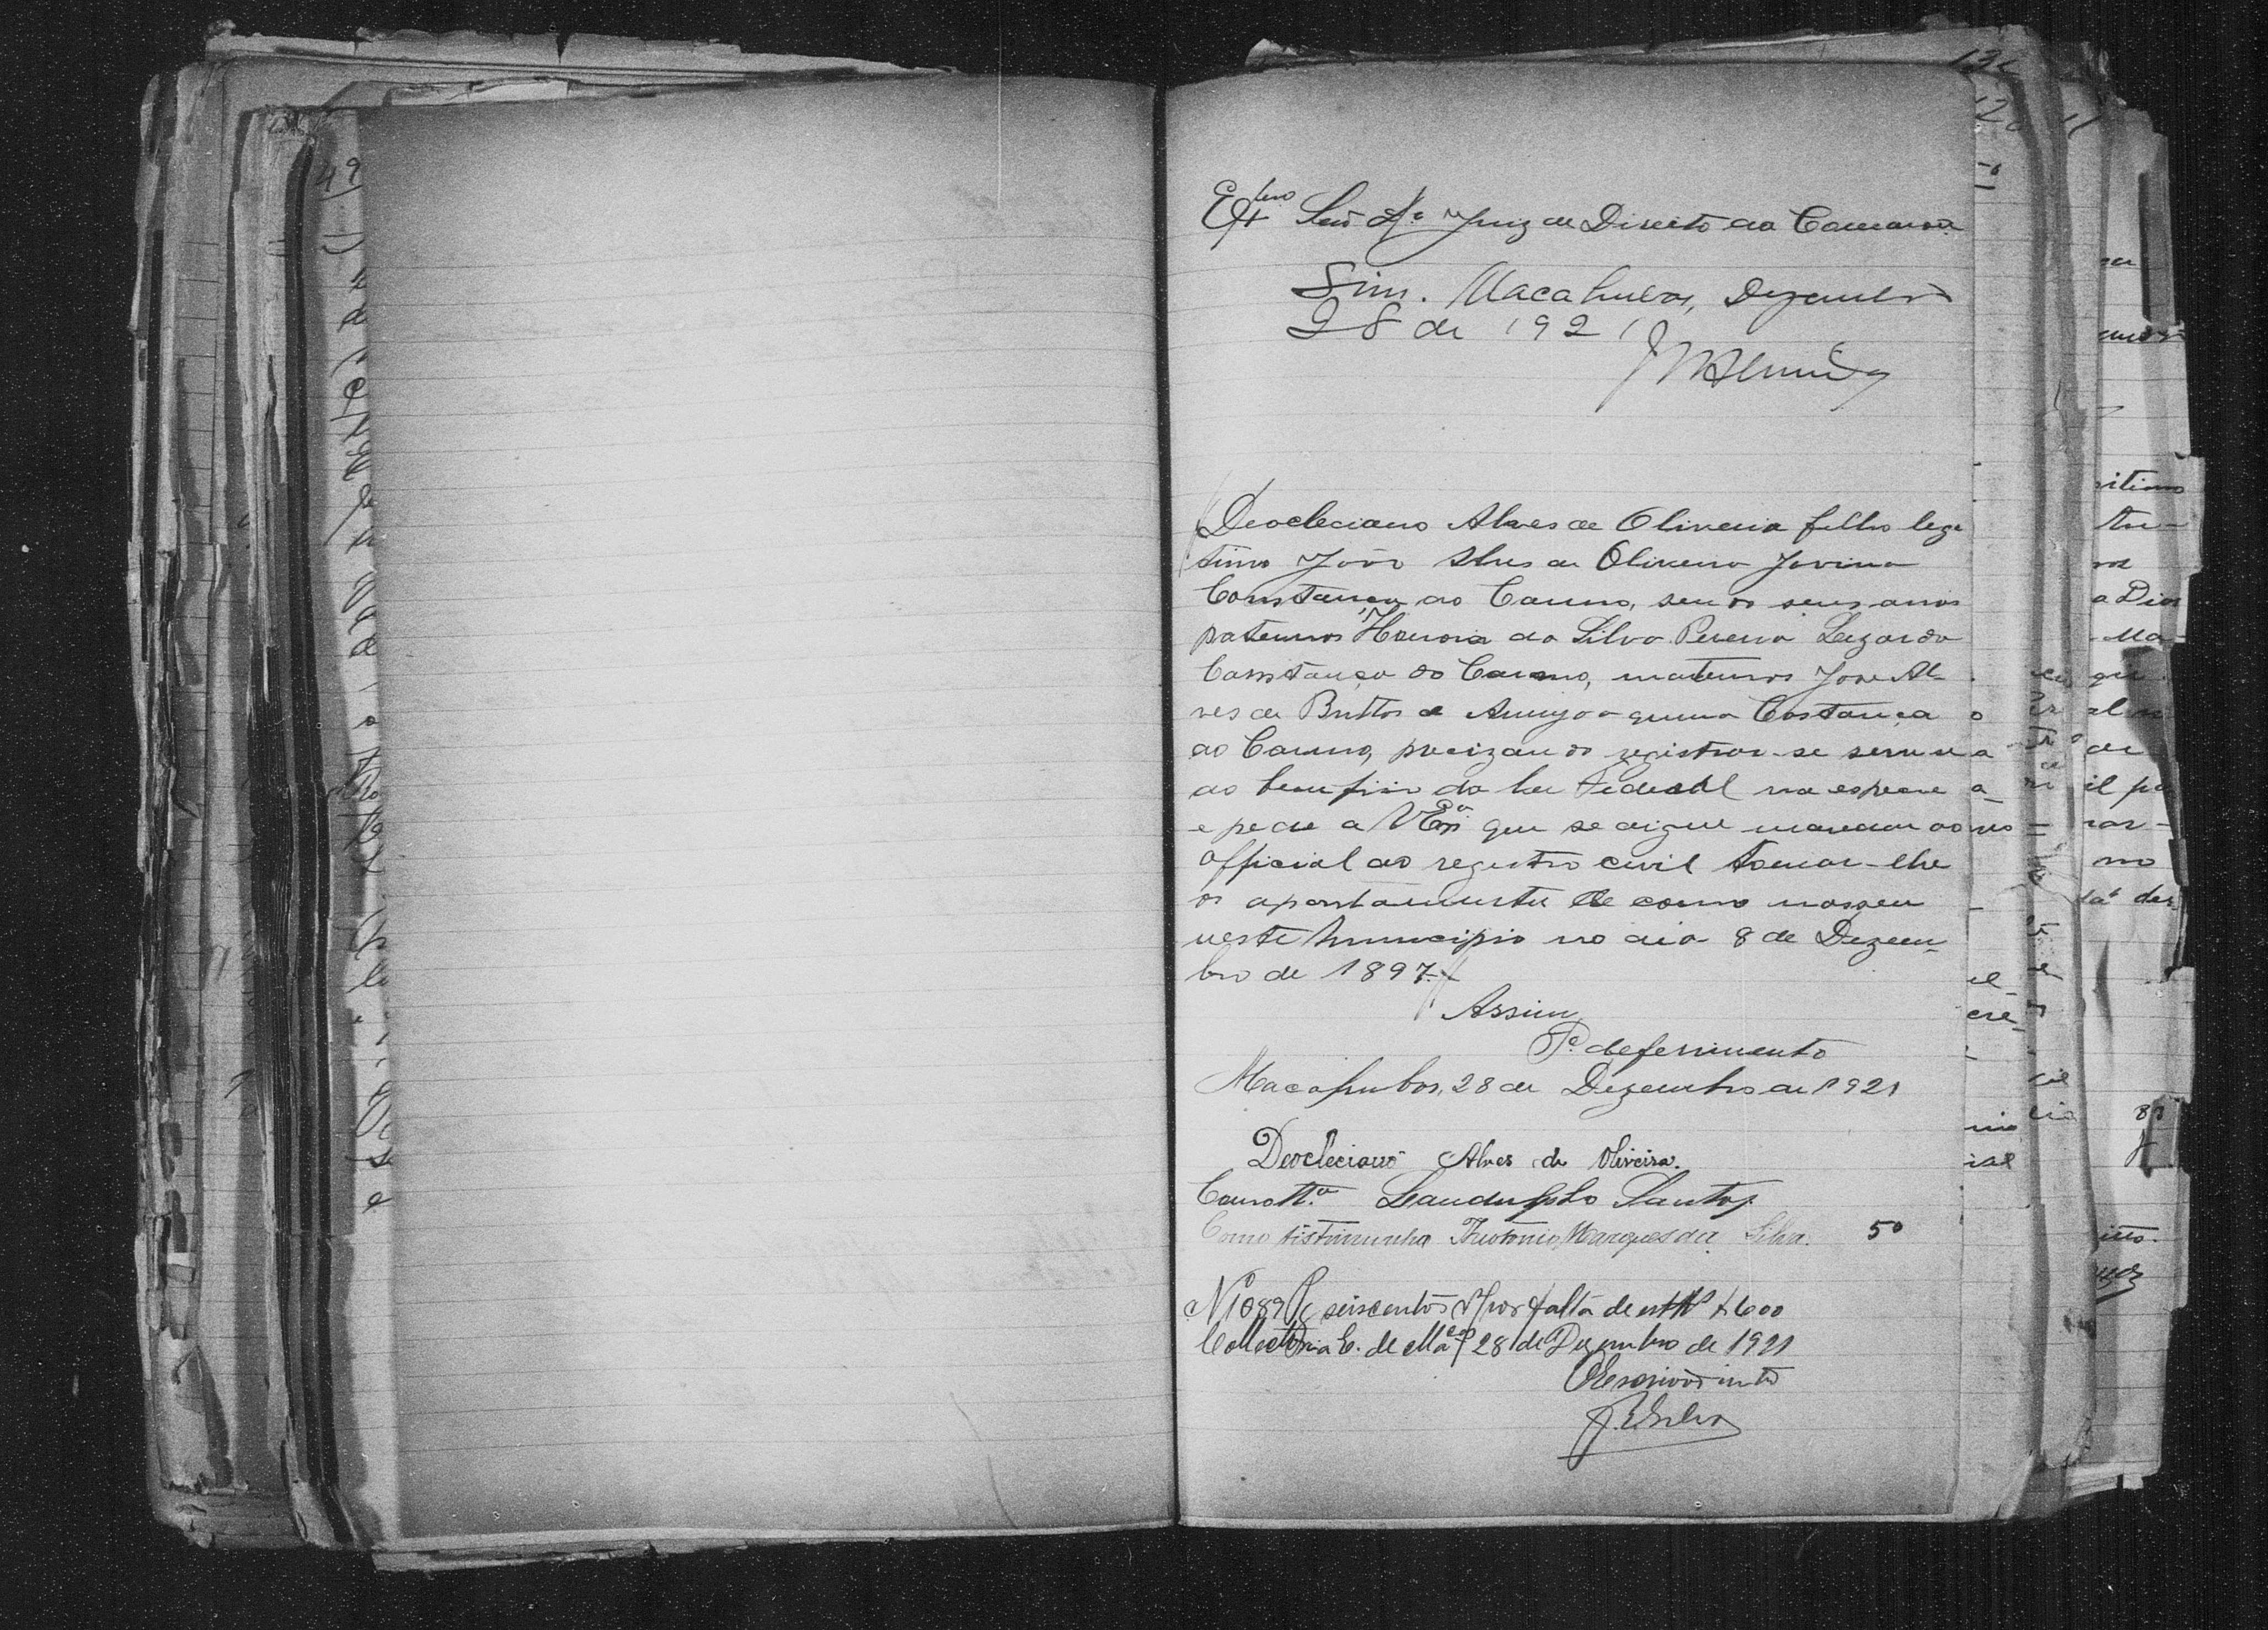 Exmo Senr Dr Juiz de Direito da Comarca
Sim. Macahubas, Dezembro
28 de 1921
Deocleciano Alves de Oliveira filho lege
timo João Alves de Oliveira Jovina
Constança do Carmo, sendo seus avos
paternos Honorio da Silva Pereira Lazarda
Constança do Carmo, maternos Jose Al-
ves de Brittos e Costança
do Carmo, precizando registrar-se serve-se
do beneficio da lei Federal na especie
e pede a VExa que se digne mandar ao
official do registro civil tomar-lhe
os apontamentu de como nasceu
neste municipio no dia 8 de Dezem-
bro de 1897
Assim
Pe deferimento
Macahubas, 28 de Dezembro de 1921
Deocleciano Alves de Oliveira.
Como ta Landulpho Santos
Como tistimunha Theotonio Marques da Silva. 50
N 1089 seiscentos por falta de 600
Collectoria E. de 28 de Dezembro de 1921
O escrivão intº
J. Silva